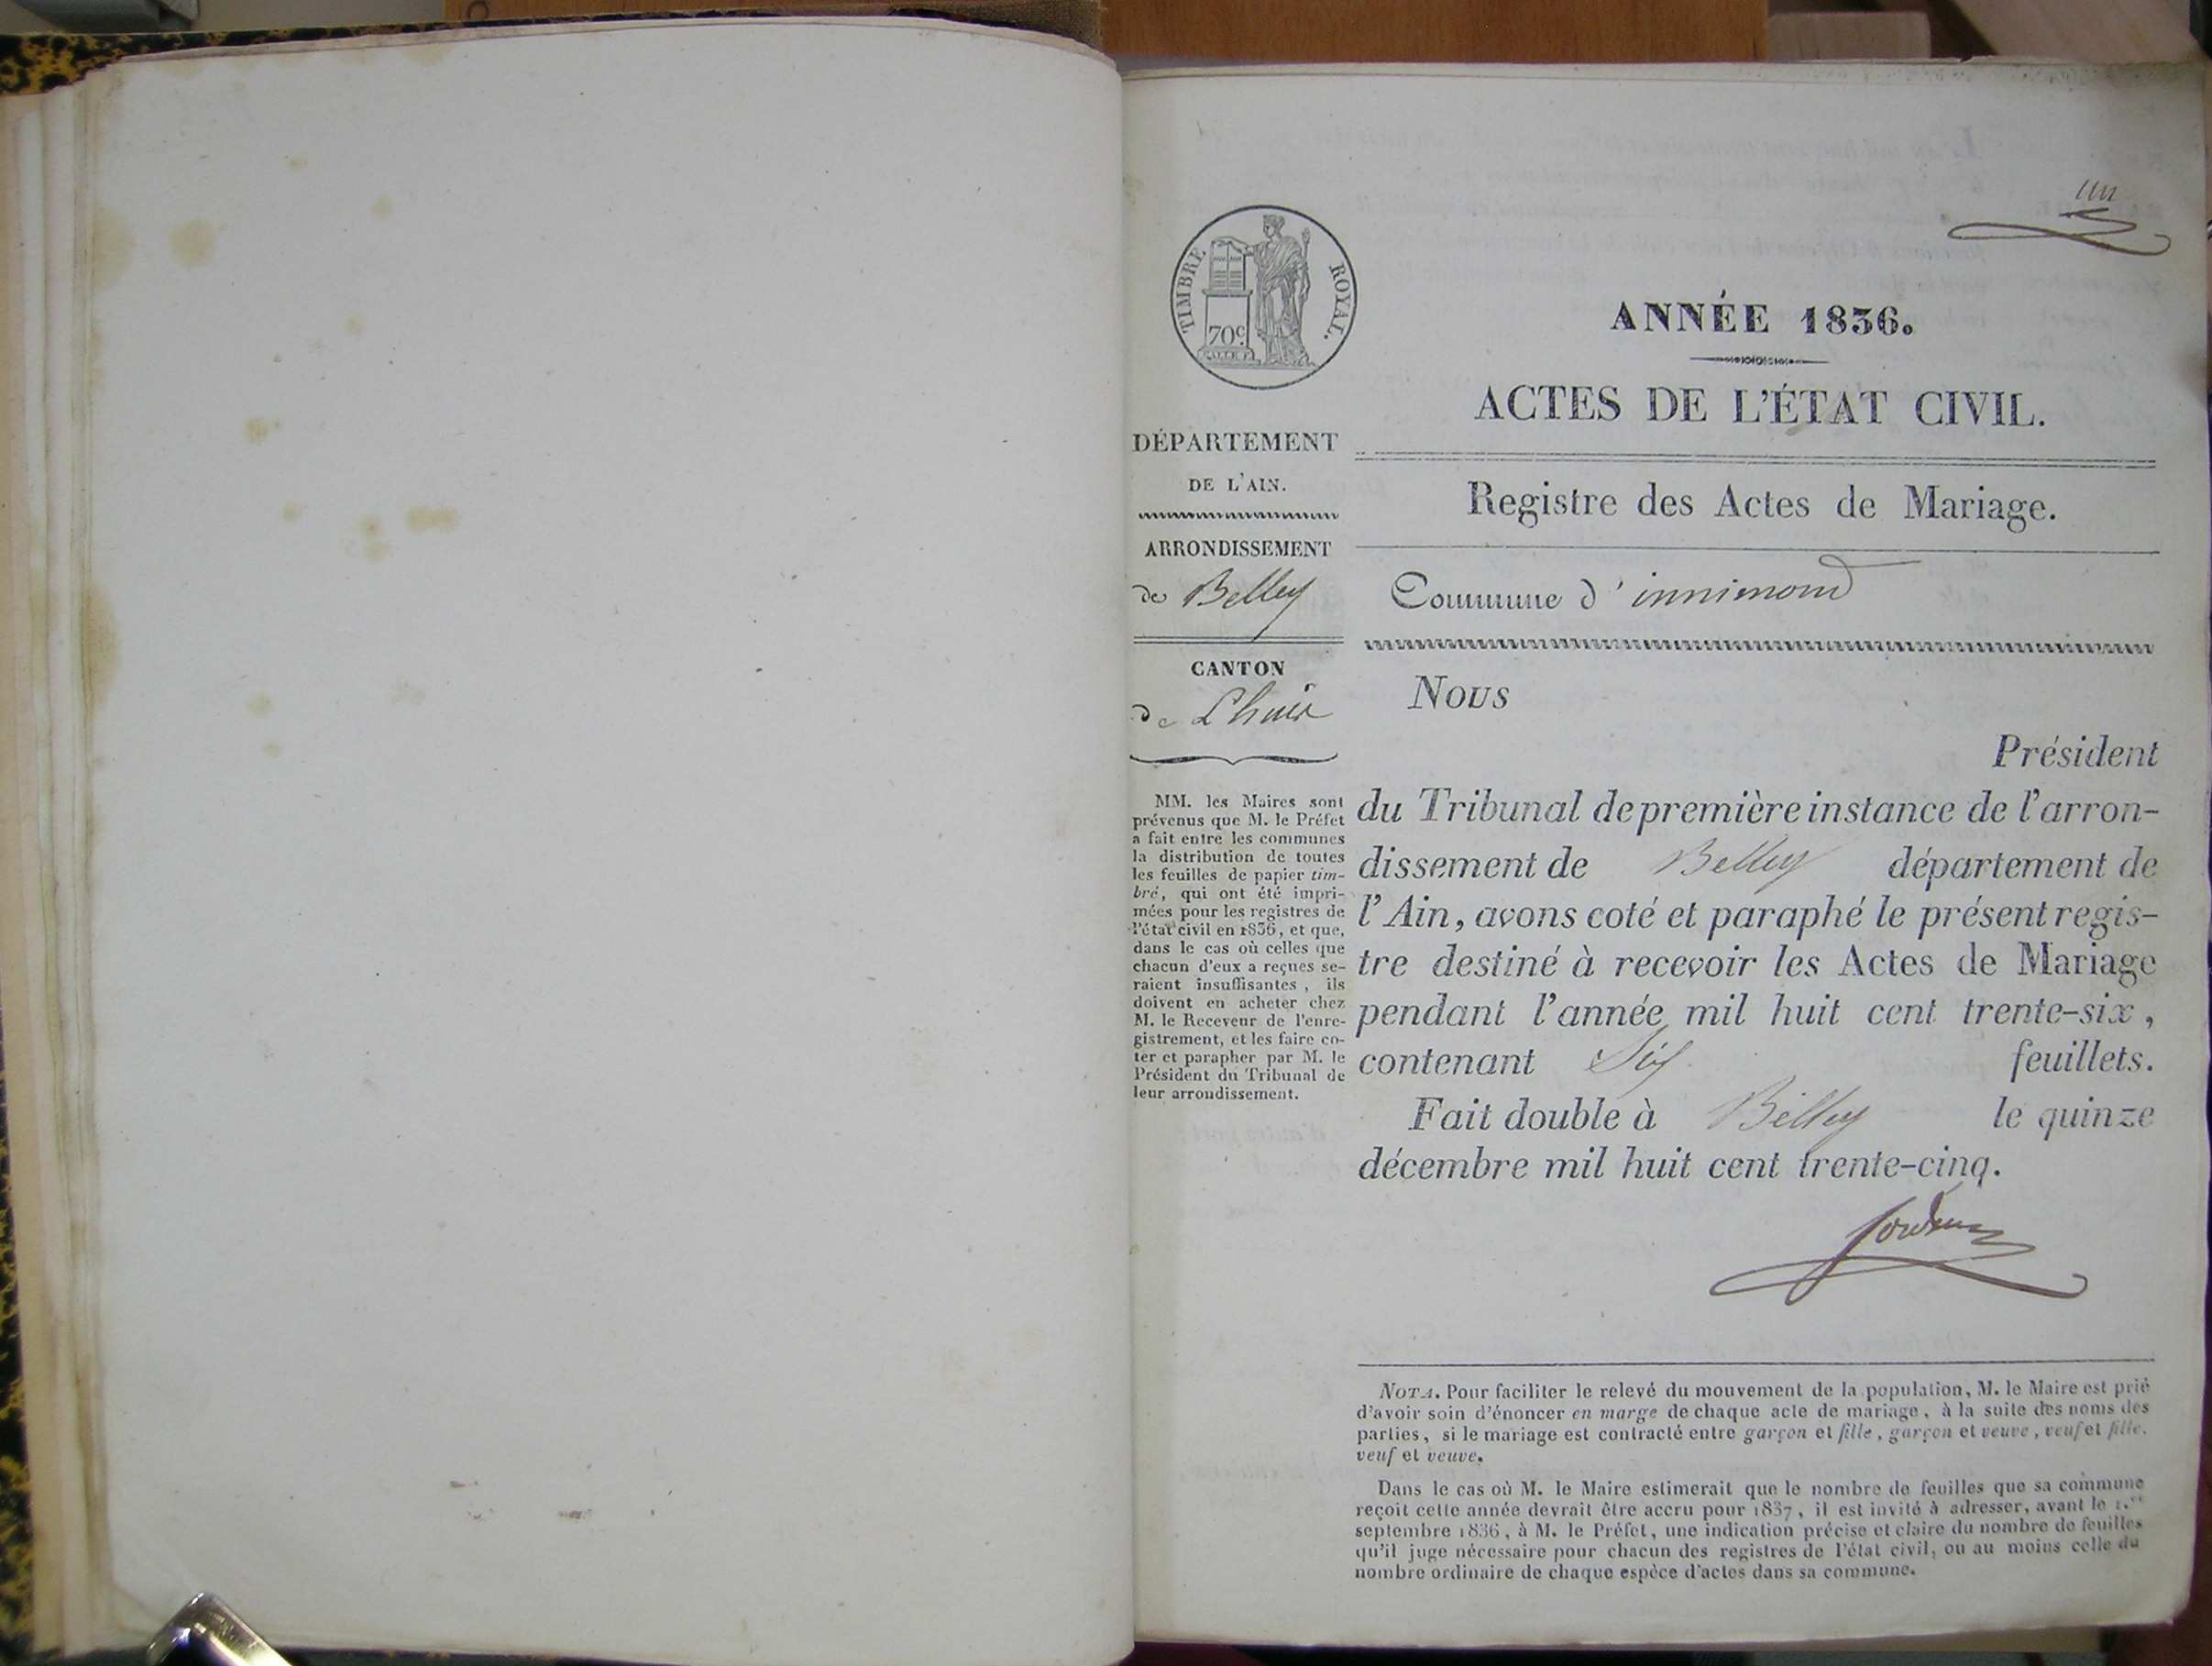 un
TIMBRE ROYAL.
70c
ANNÉE 1836.
ACTES DE L'ÉTAT CIVIL.
Registre des Actes de Mariage.
Commune d'innimond
DÉPARTEMENT
DE L'AIN.
ARRONDISSEMENT
de Belley
CANTON
de Lhuis
MM. les Maires sont
prévenus que M. le Préfet
a fait entre les communes
la distribution de toutes
les feuilles de papier tim-
bré, qui ont été impri-
mées pour les registres de
l'état civil en 1836, et que,
dans le cas où celles que
chacun d'eux a reçues se-
raient insuffisantes, ils
doivent en acheter chez
M. le Receveur de l'enre-
gistrement, et les faire co-
ter et parapher par M. le
Président du Tribunal de
leur arrondissement.
Nous
Président
du Tribunal de première instance de l'arron-
dissement de Belley département de
l'Ain, avons coté et paraphé le présent regis-
tre destiné à recevoir les Actes de Mariage
pendant l'année mil huit cent trente-six,
contenant Six feuillets.
Fait double à Belley le quinze
décembre mil huit cent trente-cinq.
NOTA. Pour faciliter le relevé du mouvement de la population, M. le Maire est prié
d'avoir soin d'énoncer en marge de chaque acte de mariage, à la suite des noms des
parties, si le mariage est contracté entre garçon et fille, garçon et veuve, veuf et fille,
veuf et veuve.
Dans le cas où M. le Maire estimerait que le nombre de feuilles que sa commune
reçoit cette année devrait être accru pour 1837, il est invité à adresser, avant le 1.er
septembre 1836, à M. le Préfet, une indication précise et claire du nombre de feuilles
qu'il juge nécessaire pour chacun des registres de l'état civil, ou au moins celle du
nombre ordinaire de chaque espèce d'actes dans sa commune.